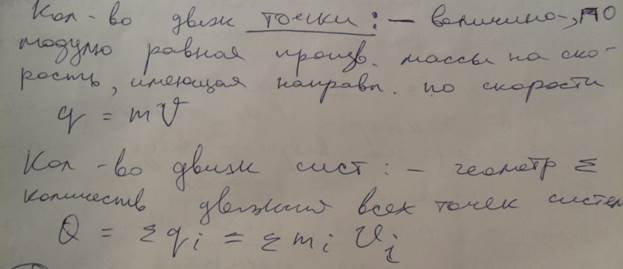 Кол-во движ точки: - величина, по
модулю равная произв. массы на ско-
рость, имеющая направл. по скорости
q = mV
Кол-во движ сист: - геометр Σ
количеств движения всех точек систем
Q = Σqi = Σmi Vi